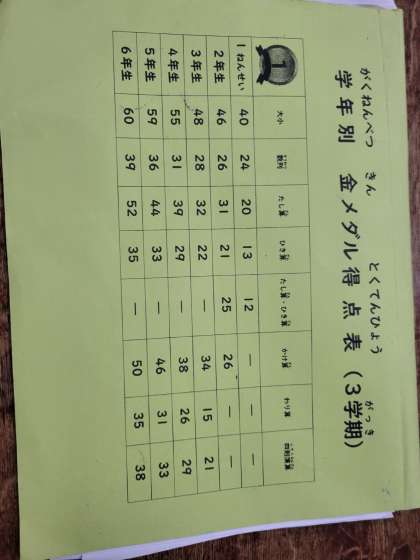 がくねんべつ きん とくてんひょう がっき
学年別 金メダル得点表（3学期）
1 大小 数列 たし算 ひき算 たし算・ひき算 かけ算 わり算 四則演算
1ねんせい 40 24 20 13 12 — — —
2年生 46 26 31 21 25 26 — —
3年生 48 28 32 22 — 34 15 21
4年生 55 31 39 29 — 38 26 29
5年生 59 36 44 33 — 46 31 33
6年生 60 39 52 35 — 50 35 38